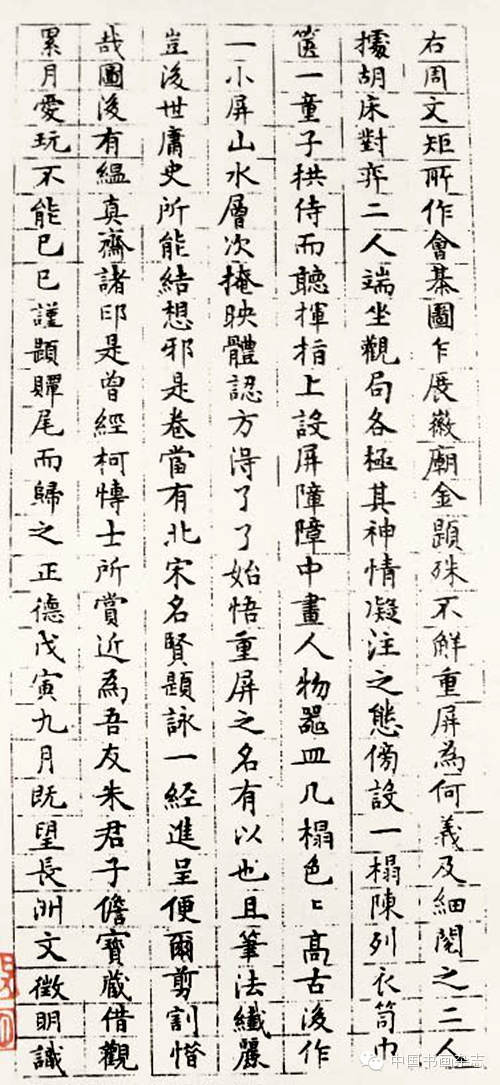 右周文矩所作會棊圖乍展徽廟金題殊不觧重屏為何義及細閱之二人
據胡床對弈二人端坐觀局各極其神情凝注之態傍設一榻陳列衣笥巾
篋一童子拱侍而聽揮指上設屏障障中畫人物器皿几榻色〻高古後作
一小屏山水層次掩映體認方得了了始悟重屏之名有以也且筆法纖麗
豈後世庸史所能結想邪是卷當有北宋名賢題詠一經進呈便爾剪割惜
哉圖後有緼真齋諸印是曾經柯博士所賞近為吾友朱君子儋寶藏借觀
累月愛玩不能已已謹題贉尾而歸之正德戊寅九月既望長洲文徵明識
中国书画杂志